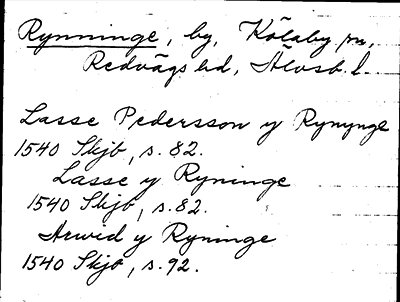 Rynninge, by, Kölaby sn,
Redvägs hd, Älvsb. l.
Lasse Pedersson y Rynynge
1540 Skjb, s. 82.
Lasse y Ryninge
1540 Skjb, s. 82.
Arwid y Ryninge
1540 Skjb, s. 92.